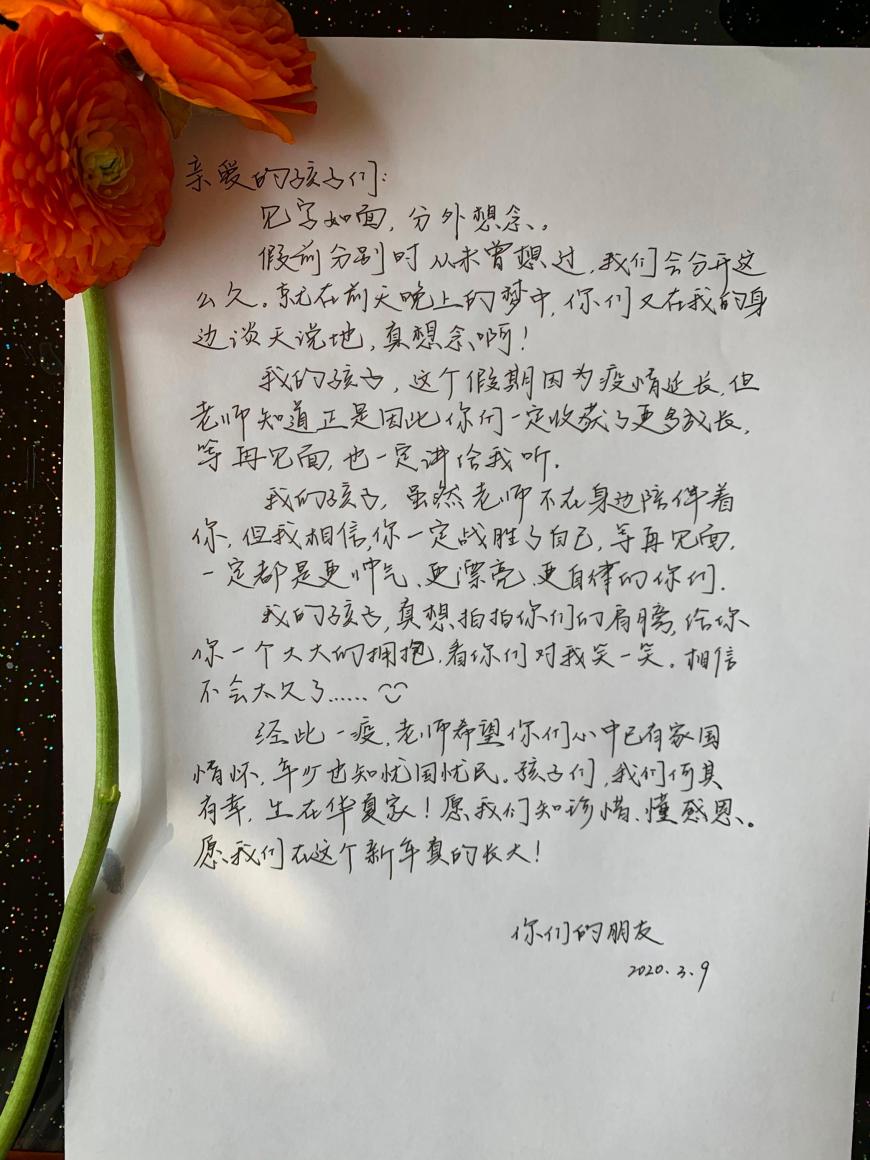 亲爱的孩子们：
见字如面，分外想念。
假前分别时从未曾想过，我们会分开这
么久。就在前天晚上的梦中，你们又在我的身
边谈天说地，真想念啊！
我的孩子，这个假期因为疫情延长，但
老师知道正是因此你们一定收获了更多成长，
等再见面，也一定讲给我听．
我的孩子，虽然老师不在身边陪伴着
你，但我相信，你一定战胜了自己，等再见面，
一定都是更帅气、更漂亮、更自律的你们．
我的孩子，真想拍拍你们的肩膀，给你
你一个大大的拥抱，看你们对我笑一笑。相信
不会太久了......
经此一疫，老师希望你们心中已有家国
情怀，年少也知忧国忧民。孩子们，我们何其
有幸，生在华夏家！愿我们知珍惜、懂感恩、。
愿我们在这个新年真的长大！
你们的朋友
2020.3.9